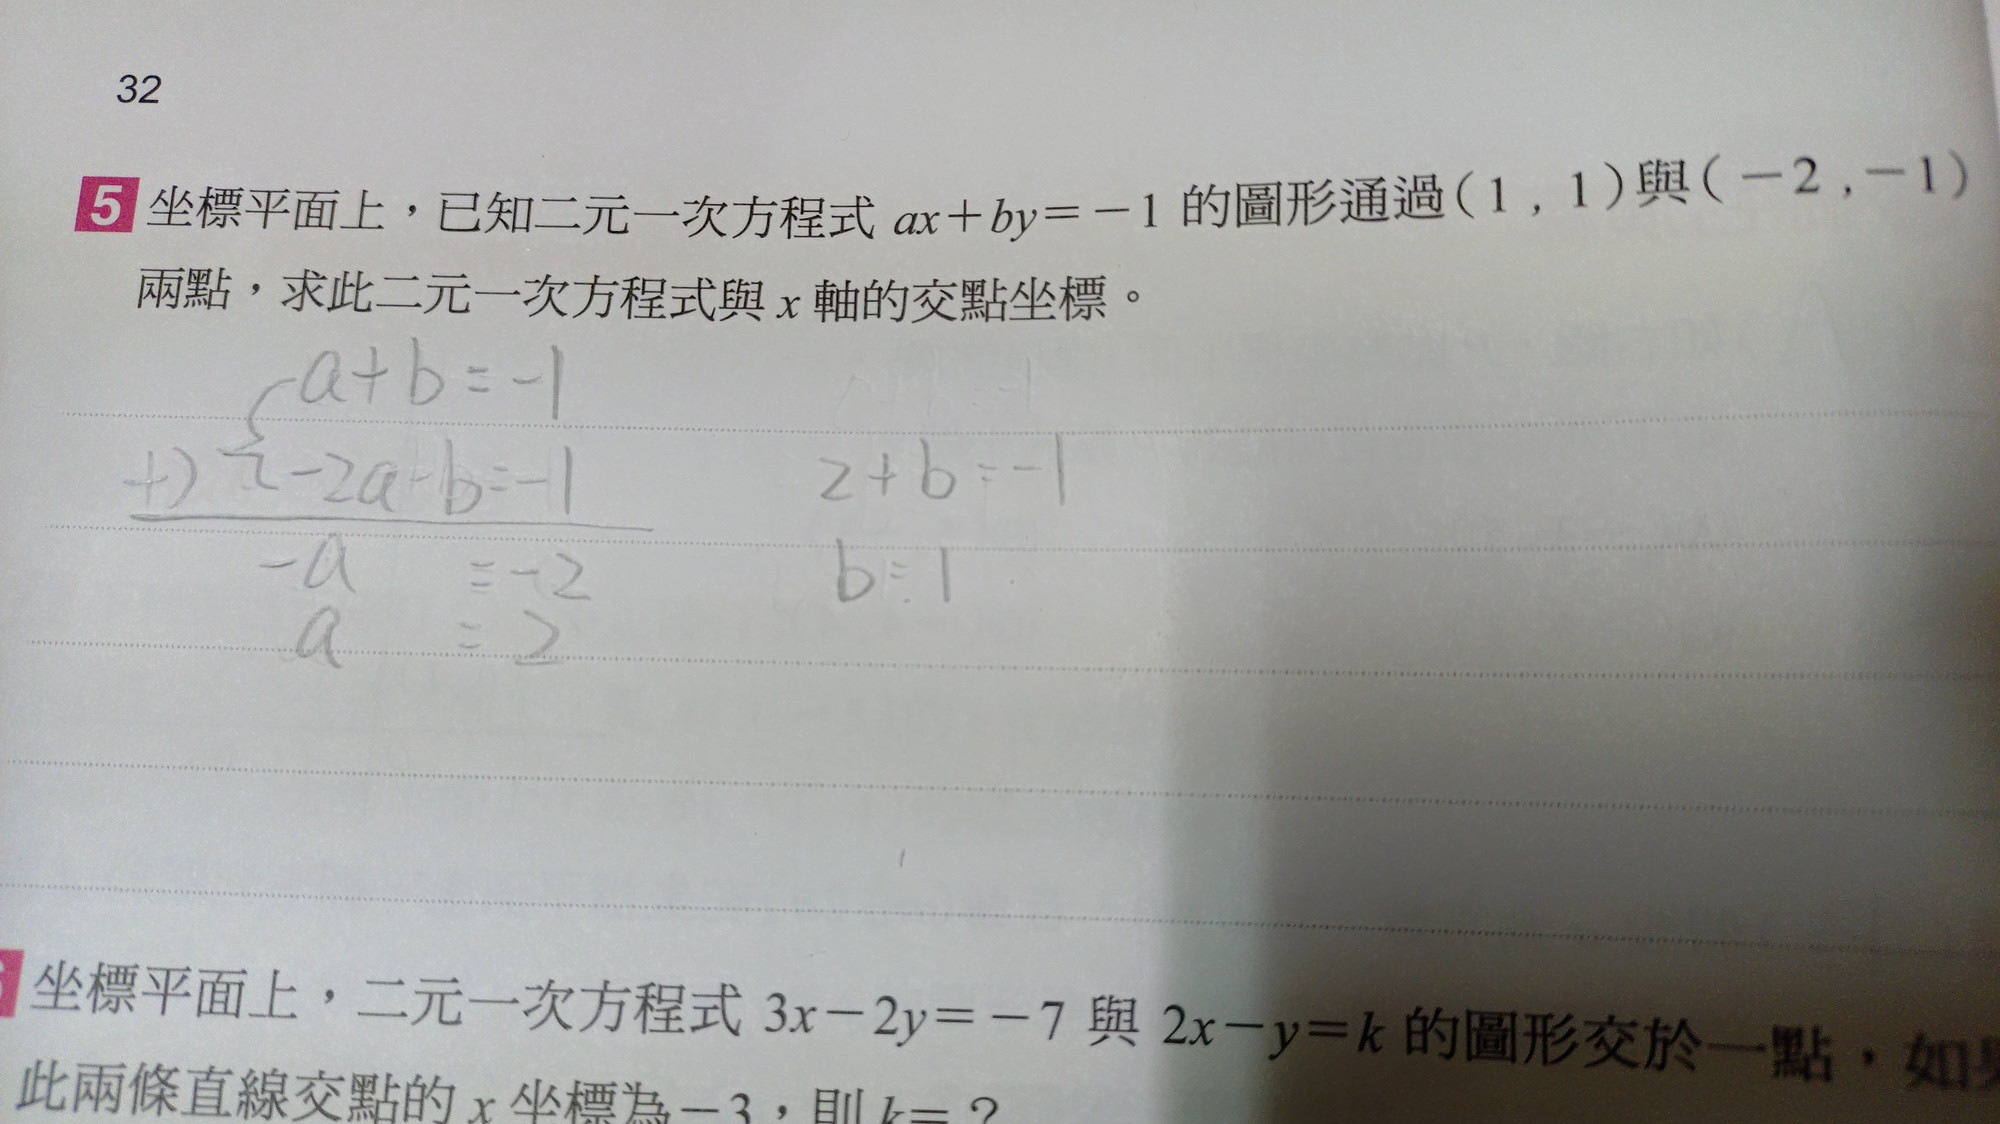 32
5 坐標平面上，已知二元一次方程式 ax＋by＝－1 的圖形通過(1 , 1)與(－2 ,－1)
兩點，求此二元一次方程式與 x 軸的交點坐標。
a+b=-1
+) -2a-b=-1
2+b=-1
-a =-2
b=1
a =2
坐標平面上，二元一次方程式 3x－2y＝－7 與 2x－y＝k 的圖形交於一點，如
此兩條直線交點的 x 坐標為－3，則 k＝？